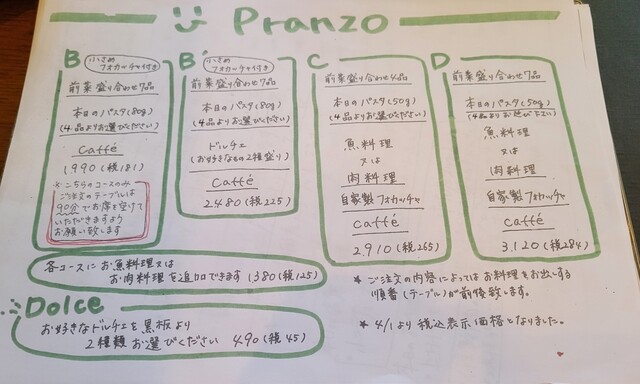 Pranzo
B 小さめフォカッチャ付き
前菜盛り合わせ7品
本日のパスタ(80g)
(4品よりお選びください)
Caffé
1990(税181)
*こちらのコースのみ
ご注文のテーブルは
90分でお席を空けて
いただきますよう
お願い致します
B' 小さめフォカッチャ付き
前菜盛り合わせ7品
本日のパスタ(80g)
(4品よりお選びください)
ドルチェ
(お好きなもの2種盛り)
Caffé
2.480(税225)
C
前菜盛り合わせ4品
本日のパスタ(50g)
(4品よりお選びください)
魚料理
又は
肉料理
自家製フォカッチャ
Caffé
2.910(税265)
D
前菜盛り合わせ7品
本日のパスタ(50g)
(4品よりお選び下さい)
魚料理
又は
肉料理
自家製フォカッチャ
Caffé
3.120(税284)
各コースにお魚料理又は
お肉料理を追加できます 1380(税125)
Dolce
お好きなドルチェを黒板より
2種類お選びください 490(税45)
*ご注文の内容によってはお料理をお出しする
順番(テーブル)が前後致します。
*4/1より税込表示価格となりました。